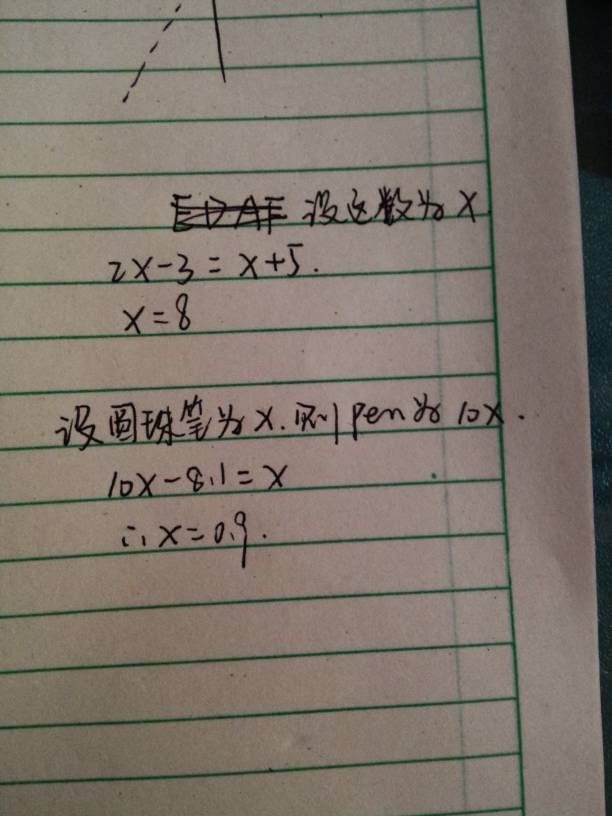 设这数为x
2x-3=x+5.
x=8
设圆珠笔为x.则pen为10x.
10x-8.1=x
∴x=0.9.